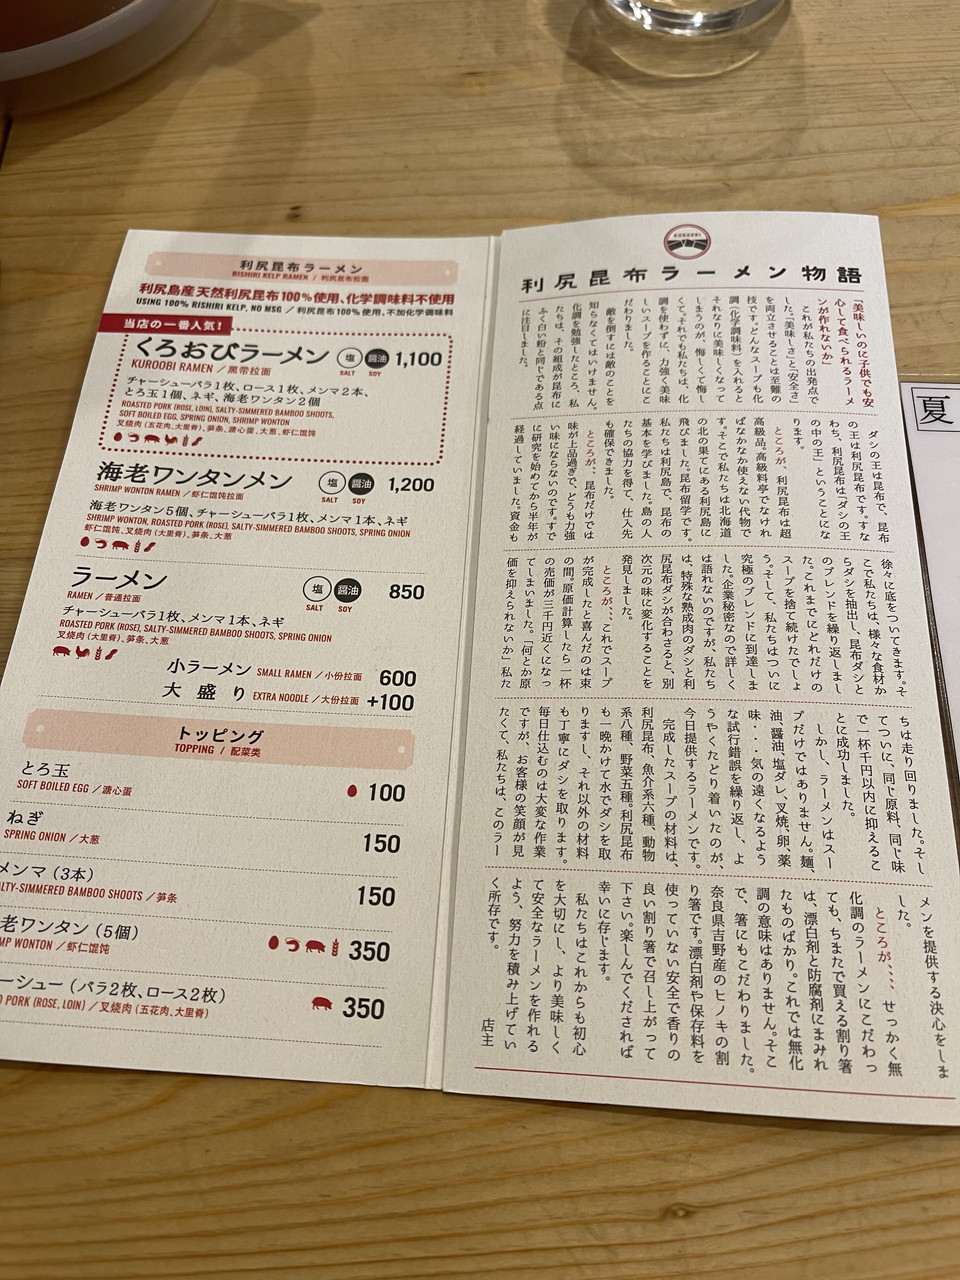 利尻昆布ラーメン
RISHIRI KELP RAMEN / 利尻昆布拉面
利尻島産天然利尻昆布100%使用、化学調味料不使用
USING 100% RISHIRI KELP, NO MSG / 利尻昆布100%使用、不加化学调味料
当店の一番人気!
くろおびラーメン 塩 醤油 1,100
KUROOBI RAMEN / 黑带拉面 SALT SOY
チャーシューバラ1枚、ロース1枚、メンマ2本、
とろ玉1個、ネギ、海老ワンタン2個
ROASTED PORK (ROSE, LOIN), SALTY-SIMMERED BAMBOO SHOOTS,
SOFT BOILED EGG, SPRING ONION, SHRIMP WONTON
叉烧肉 (五花肉、大里脊)、笋条、溏心蛋、大葱、虾仁馄饨
海老ワンタンメン 塩 醤油 1,200
SHRIMP WONTON RAMEN / 虾仁馄饨拉面 SALT SOY
海老ワンタン5個、チャーシューバラ1枚、メンマ1本、ネギ
SHRIMP WONTON, ROASTED PORK (ROSE), SALTY-SIMMERED BAMBOO SHOOTS, SPRING ONION
虾仁馄饨、叉烧肉 (大里脊)、笋条、大葱
ラーメン 塩 醤油 850
RAMEN / 普通拉面 SALT SOY
チャーシューバラ1枚、メンマ1本、ネギ
ROASTED PORK (ROSE), SALTY-SIMMERED BAMBOO SHOOTS, SPRING ONION
叉烧肉 (大里脊)、笋条、大葱
小ラーメン SMALL RAMEN / 小份拉面 600
大盛り EXTRA NOODLE / 大份拉面 +100
トッピング
TOPPING / 配菜类
とろ玉 100
SOFT BOILED EGG / 溏心蛋
ねぎ 150
SPRING ONION / 大葱
メンマ (3本) 150
ALTY-SIMMERED BAMBOO SHOOTS / 笋条
老ワンタン (5個) 350
MP WONTON / 虾仁馄饨
ーシュー (バラ2枚、ロース2枚) 350
PORK (ROSE, LOIN) / 叉烧肉 (五花肉、大里脊)
KUROOBI
利尻昆布ラーメン物語
「美味しいのに子供でも安
心して食べられるラーメ
ンが作れないか」
これが私たちの出発点で
した。「美味しさ」と「安全さ」
を両立させることは至難の
技です。どんなスープも化
調(化学調味料)を入れると
それなりに美味しくなって
しまうのが、悔しくて悔し
くて。それでも私たちは、化
調を使わずに、力強く美味
しいスープを作ることにこ
だわりました。
敵を倒すには敵のことを
知らなくてはいけません。
化調を勉強したところ、私
たちは、その組成が昆布に
ふく白い粉と同じである点
に注目しました。
ダシの王は昆布で、昆布
の王は利尻昆布です。すな
わち、利尻昆布は「ダシの王
の中の王」ということにな
ります。
ところが、利尻昆布は超
高級品。高級料亭でなけれ
ばなかなか使えない代物で
す。そこで私たちは北海道
の北の果てにある利尻島に
飛びました。昆布留学です。
私たちは利尻島で、昆布の
基本を学びました。島の人
たちの協力を得て、仕入先
も確保できました。
ところが、昆布だけでは
味が上品過ぎで、どうも力強
い味にならないのです。すで
に研究を始めてから半年が
経過していました。資金も
徐々に底をついてきます。そ
こで私たちは、様々な食材か
らダシを抽出し、昆布ダシと
のブレンドを繰り返しまし
た。これまでにどれだけの
スープを捨て続けたでしょ
う。そして、私たちはついに
究極のブレンドに到達しま
した。企業秘密なので詳しく
は語れないのですが、私たち
は、特殊な熟成肉のダシと利
尻昆布ダシが合わさると、別
次元の味に変化することを
発見しました。
ところが、これでスープ
が完成したと喜んだのは束
の間。原価計算したら一杯
の売価が三千円近くになっ
てしまいました。「何とか原
価を抑えられないか」私た
ちは走り回りました。そし
てついに、同じ原料、同じ味
で一杯千円以内に抑えるこ
とに成功しました。
しかし、ラーメンはスー
プだけではありません。麺、
油、醤油、塩ダレ、叉焼、卵、薬
味・・・気の遠くなるよう
な試行錯誤を繰り返し、よ
うやくたどり着いたのが、
今日提供するラーメンです。
完成したスープの材料は、
利尻昆布、魚介系六種、動物
系八種、野菜五種。利尻昆布
も一晩かけて水でダシを取
りますし、それ以外の材料
も丁寧にダシを取ります。
毎日仕込むのは大変な作業
ですが、お客様の笑顔が見
たくて、私たちは、このラー
メンを提供する決心をしま
した。
ところが、、、せっかく無
化調のラーメンにこだわっ
ても、ちまたで買える割り箸
は、漂白剤と防腐剤にまみれ
たものばかり。これでは無化
調の意味はありません。そこ
で、箸にもこだわりました。
奈良県吉野産のヒノキの割
り箸です。漂白剤や保存料を
使っていない安全で香りの
良い割り箸で召し上がって
下さい。楽しんでくだされば
幸いに存じます。
私たちはこれからも初心
を大切にし、より美味しく
て安全なラーメンを作れる
よう、努力を積み上げてい
く所存です。
店主
夏